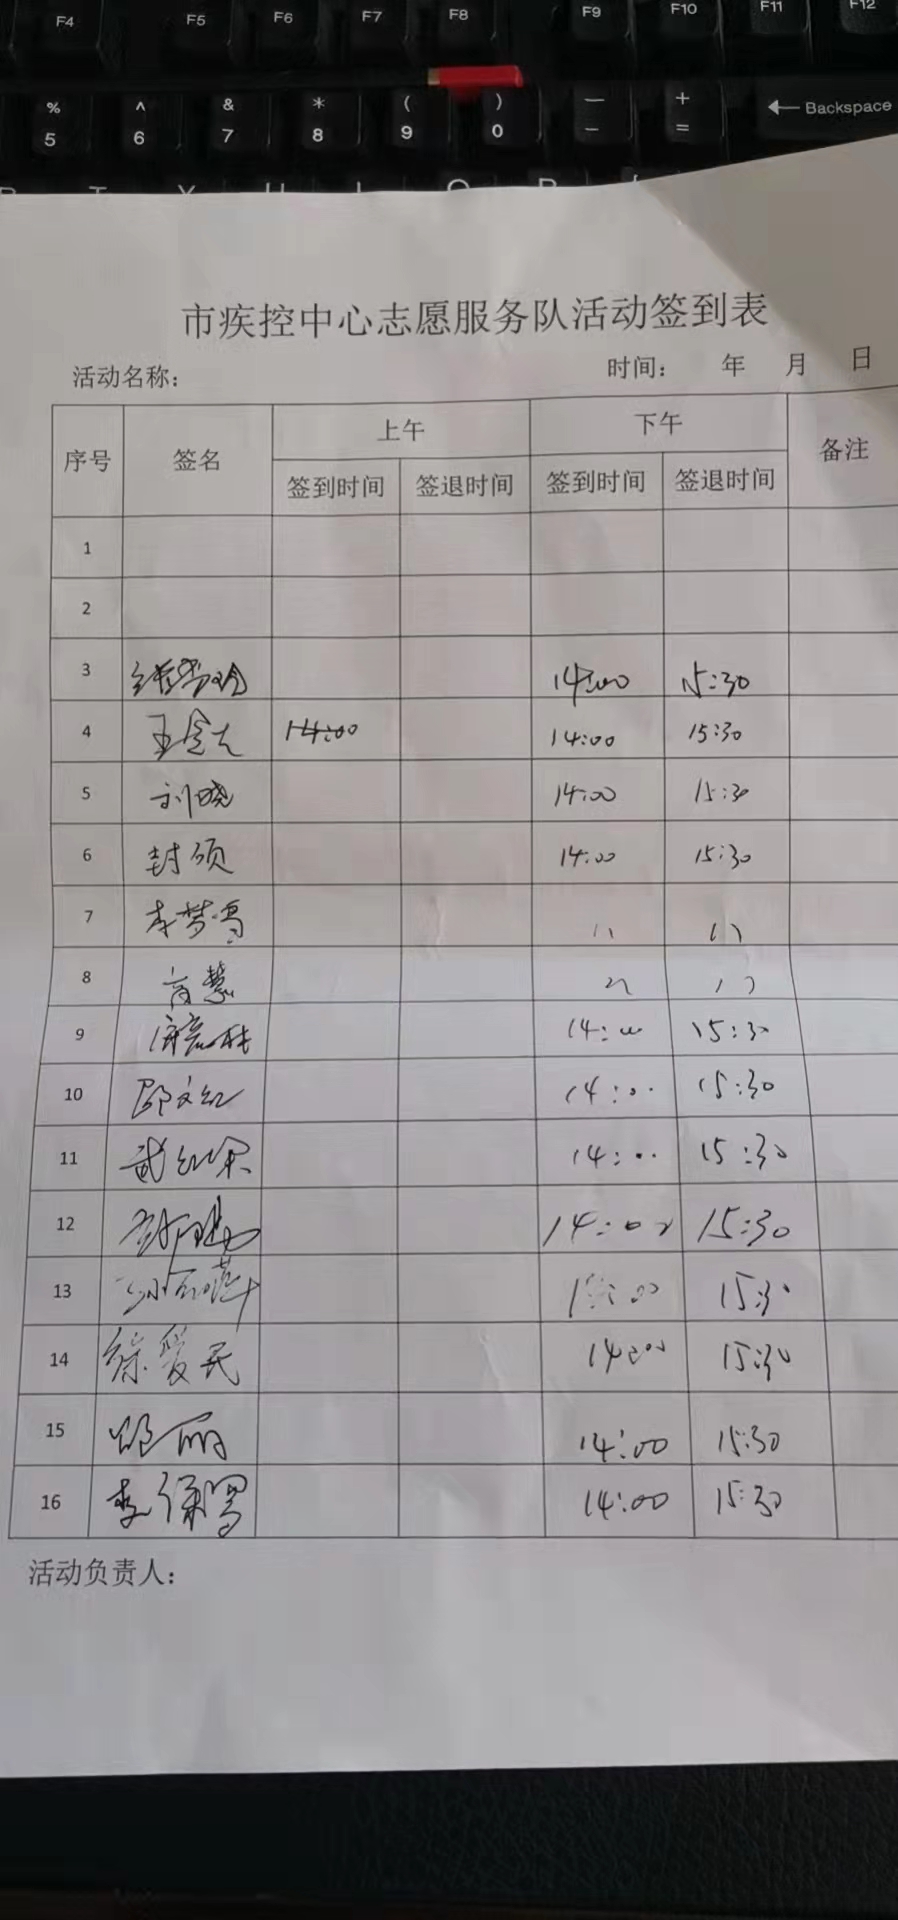 F4 F5 F6 F7 F8 F9 F10 F11 F12
% ^ & * ( ) — +
5 6 7 8 9 0 - = ← Backspace
市疾控中心志愿服务队活动签到表
活动名称： 时间： 年 月 日
序号 签名 上午 下午 备注
签到时间 签退时间 签到时间 签退时间
1
2
3 14:00 15:30
4 14:00 14:00 15:30
5 刘晓 14:00 15:30
6 封硕 14:00 15:30
7 李梦雪 〃 〃
8 高慧 〃 〃
9 14:00 15:30
10 邵文红 14:00 15:30
11 武红 14:00 15:30
12 14:00 15:30
13 15:30
14 徐爱民 14:00 15:30
15 丽 14:00 15:30
16 李保军 14:00 15:30
活动负责人：